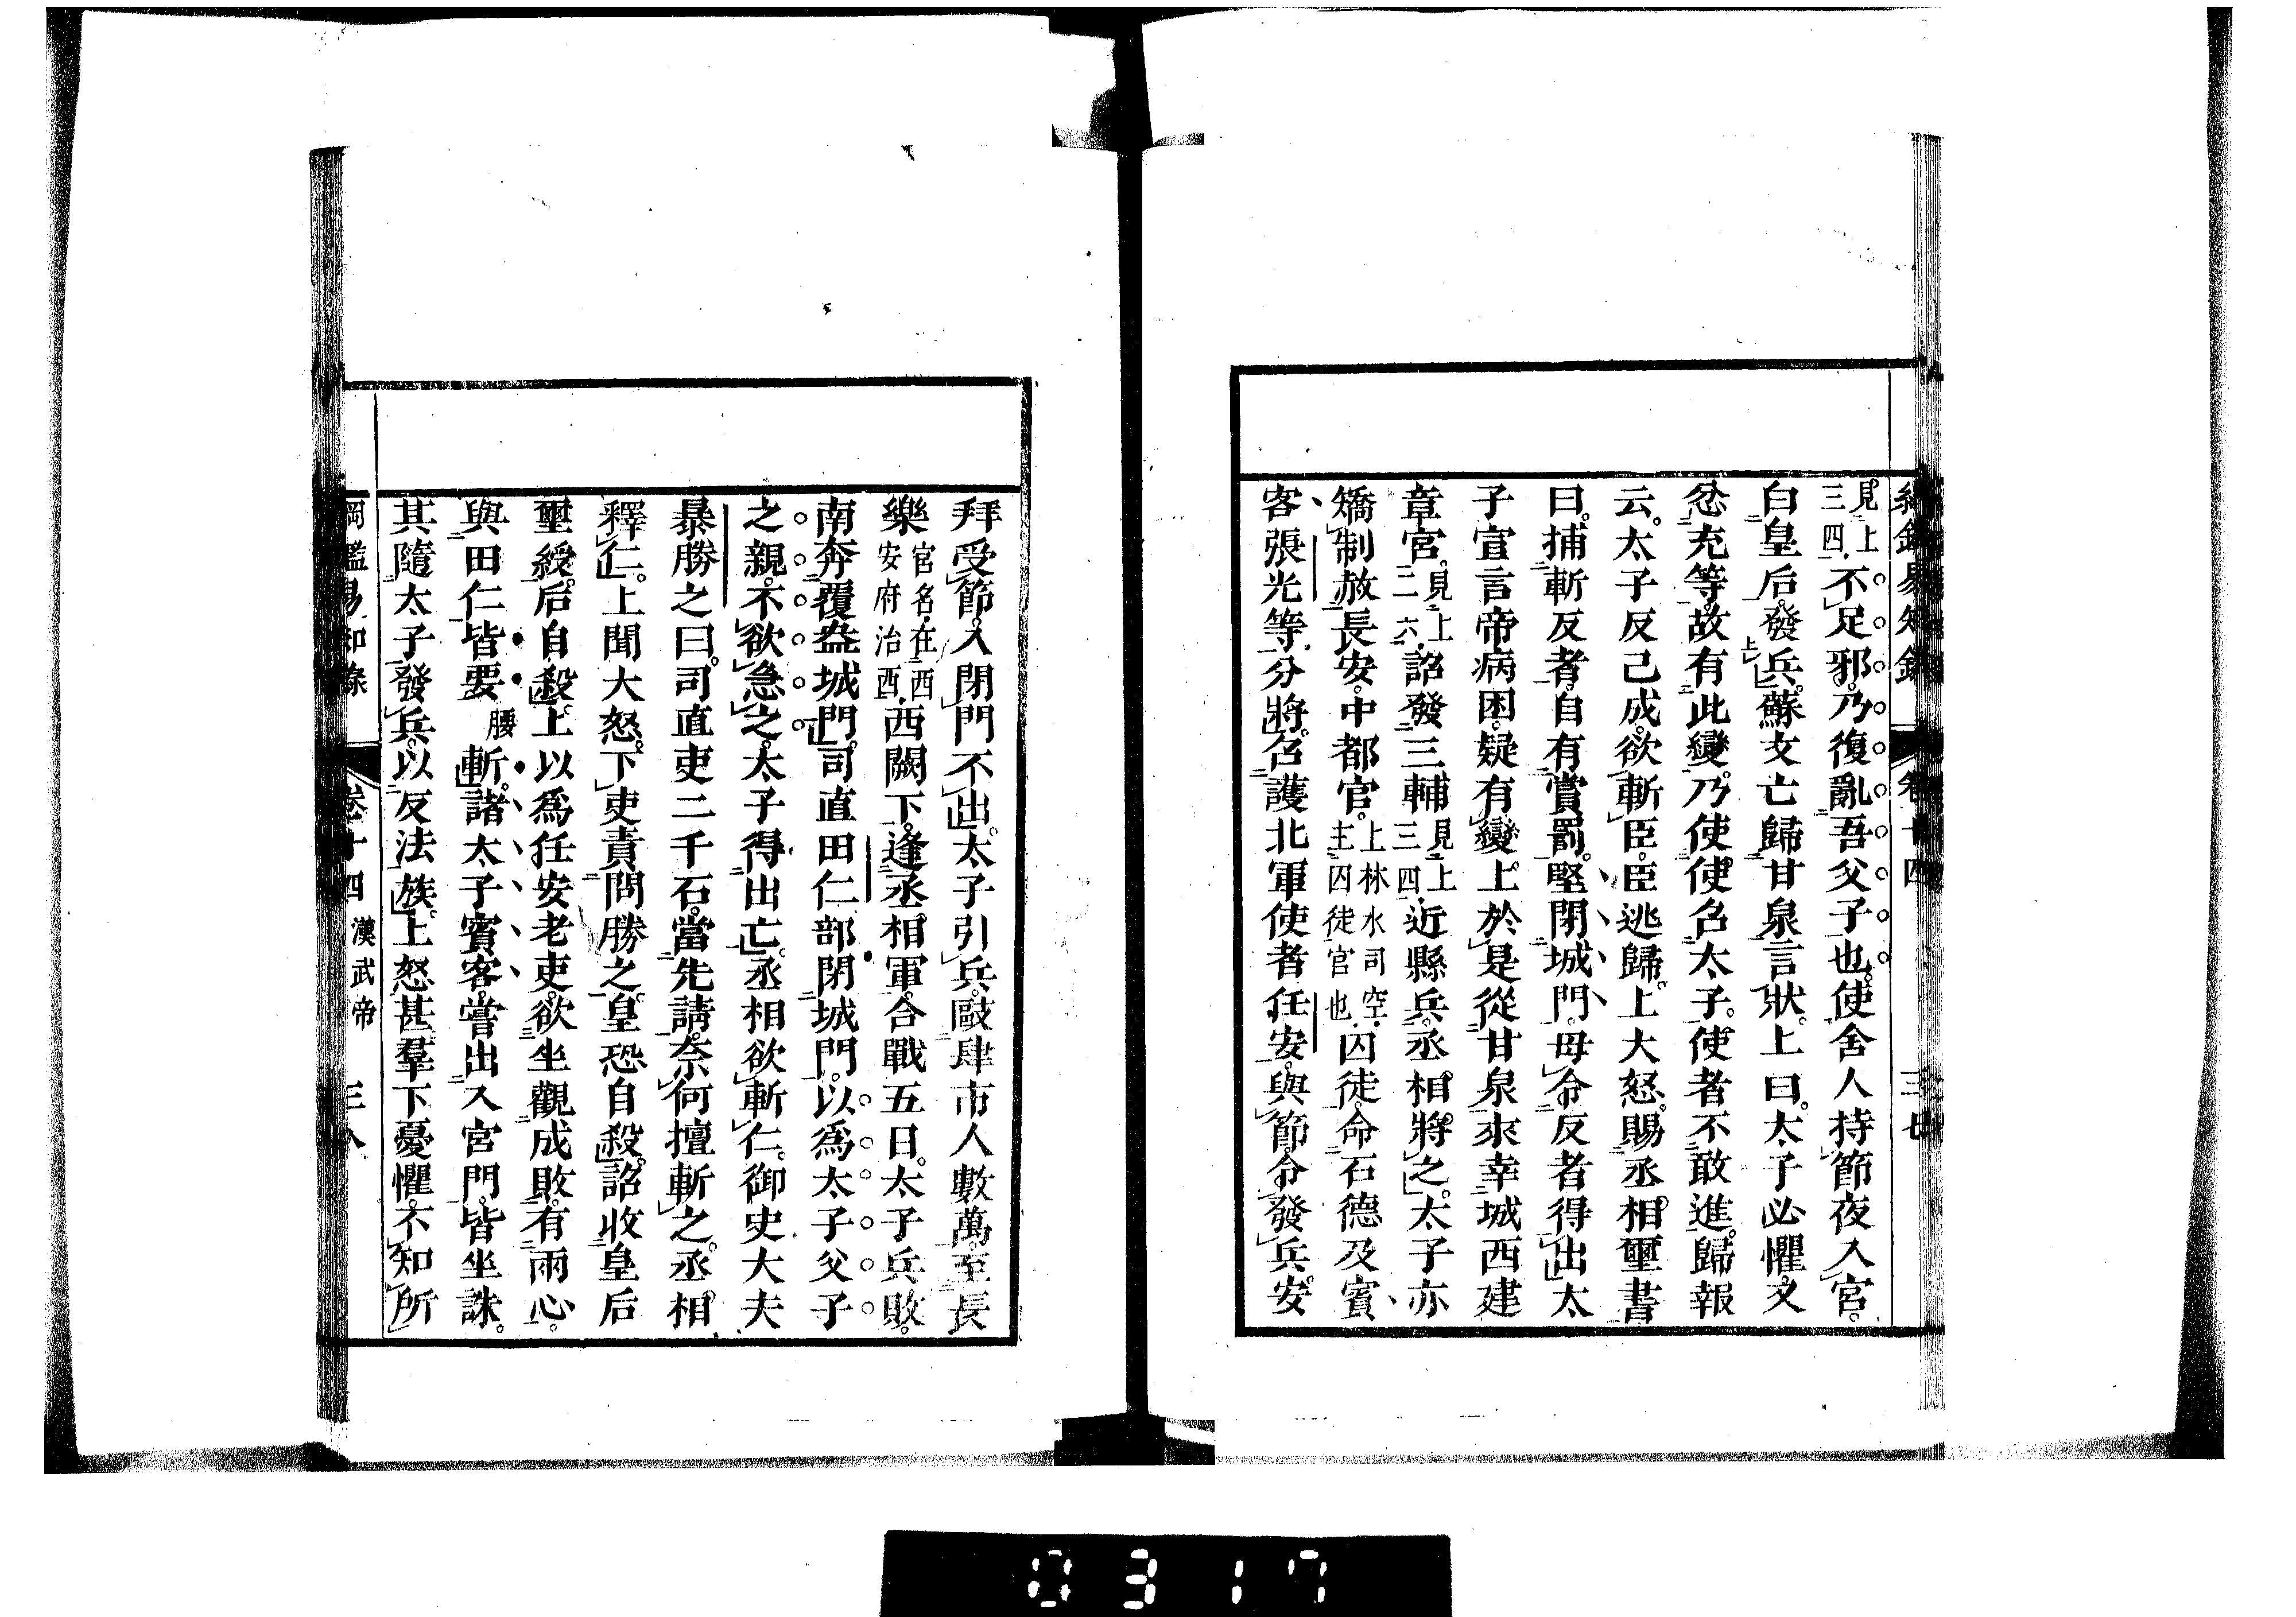 綱鑑易知錄 卷十四 三七
見上三四.不足邪.乃復亂吾父子也.使舍人持節夜入宮.
白皇后.發兵.蘇文亡歸甘泉言狀.上曰.太子必懼.又
忿充等.故有此變.乃使使召太子.使者不敢進.歸報
云.太子反已成.欲斬臣.臣逃歸.上大怒.賜丞相璽書
曰.捕斬反者.自有賞罰.堅閉城門.毋令反者得出.太
子宣言帝病困.疑有變.上於是從甘泉來幸城西建
章宮.見上二六.詔發三輔見上三四.近縣兵.丞相將之.太子亦
矯制赦長安.中都官.上林水司空.主囚徒官也.囚徒.命石德及賓
客張光等.分將.召護北軍使者任安.與節.令發兵.安
拜受節.入閉門不出.太子引兵.敺肆市人數萬.至長
樂宮名.在西安府治西.西闕下.逢丞相軍.合戰五日.太子兵敗.
南奔覆盎城門.司直田仁部閉城門.以爲太子父子
之親.不欲急之.太子得出亡.丞相欲斬仁.御史大夫
暴勝之曰.司直吏二千石.當先請.奈何擅斬之.丞相
釋仁.上聞大怒.下吏責問勝之.皇恐自殺.詔收皇后
璽綬.后自殺.上以爲任安老吏.欲坐觀成敗.有兩心.
與田仁皆要腰斬.諸太子賓客.嘗出入宮門.皆坐誅.
其隨太子發兵.以反法族.上怒甚.羣下憂懼.不知所
綱鑑易知錄 卷十四 漢武帝 三八
0317